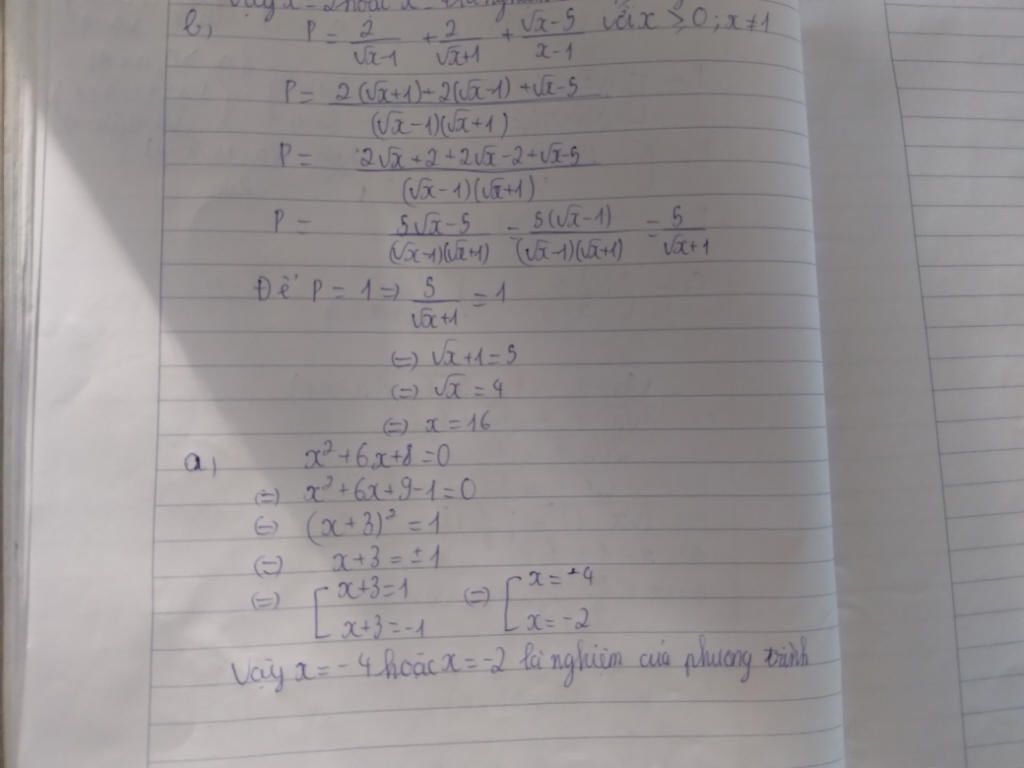 Vậy x = -2 hoặc x = -4
b, P = 2/(√x-1) + 2/(√x+1) + (√x-5)/(x-1) với x ≥ 0 ; x ≠ 1
P = (2(√x+1)+2(√x-1)+√x-5)/((√x-1)(√x+1))
P = (2√x+2+2√x-2+√x-5)/((√x-1)(√x+1))
P = (5√x-5)/((√x-1)(√x+1)) = 5(√x-1)/((√x-1)(√x+1)) = 5/(√x+1)
Để P = 1 => 5/(√x+1) = 1
(=) √x+1 = 5
(=) √x = 4
(=) x = 16
a, x²+6x+8=0
(=) x²+6x+9-1=0
(=) (x+3)² = 1
(=) x+3 = ±1
(=) [ x+3=1 (=) [ x = -4
x+3=-1 x = -2
Vậy x = -4 hoặc x = -2 là nghiệm của phương trình